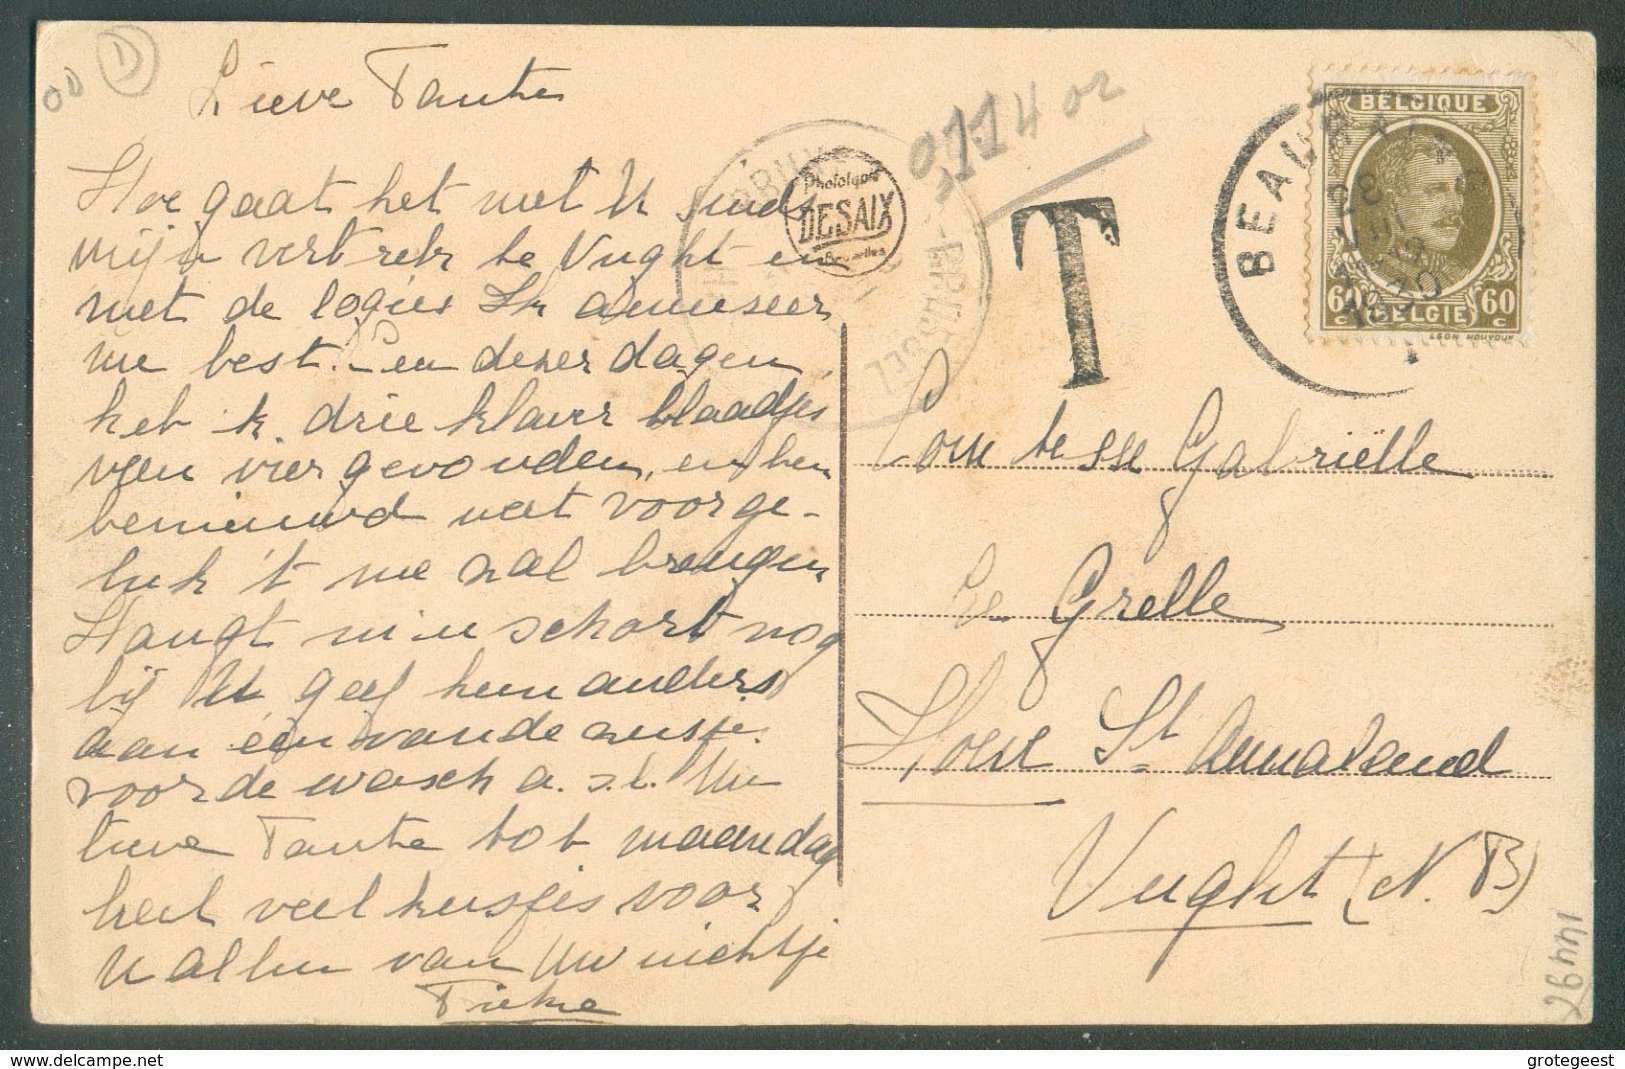 Lieve Tante
Hoe gaat het met U sinds
mijn vertrek te Vught en
met de logies Ik amuseer
me best. En dezer dagen
heb ik drie klaver blaadjes
van vier gevonden, en ben
benieuwd wat voor ge-
luk 't me zal brengen
Hangt mijn schort nog
bij U geef hem anders
aan één van de zusje.
voor de wasch a.s.l. Uw
lieve Tante tot maandag
heel veel kusjes voor
U allen van Uw nichtje
Tieke
D
Phototypie
DESAIX
Bruxelles
BRUSSEL
0114 or
T
BEAURAING
28
1930
BELGIQUE
60 c BELGIË 60 c
Comtesse Gabriëlle
de Grelle
Huize St Annaland
Vught (N. B)
grotegeest